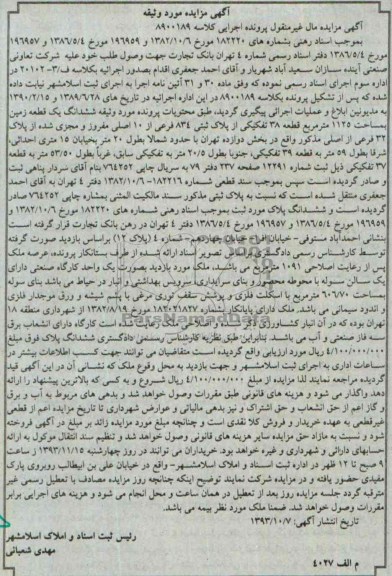 آگهی مزایده مورد وثیقه
آگهی مزایده مال غیرمنقول پرونده اجرایی کلاسه ۸۹۰۰۱۸۹
بموجب اسناد رهنی بشماره های ۱۸۲۲۲۰ مورخ ۱۳۸۲/۱۰/۶ و ۱۹۶۹۵۹ مورخ ۱۳۸۶/۵/۴ و ۱۹۶۹۵۷
مورخ ۱۳۸۶/۵/۴ دفتر اسناد رسمی شماره ٤ تهران بانک تجارت جهت وصول طلب خود علیه شرکت تعاونی
صنعتی آینده سازان سعید آباد شهریار و آقای احمد جعفری اقدام بصدور اجرائیه بکلاسه ف/۳- ۲۰۱۰۲ در
اداره سوم اجرای اسناد رسمی نموده که وفق ماده ۳۰ و ۳۱ آئین نامه اجرا به اجرای ثبت اسلامشهر نیابت داده
شده که پس از تشکیل پرونده بکلاسه ۸۹۰۰۱۸۹ در این اداره اجرائیه در تاریخ های ۱۳۸۹/۶/۲۸ و ۱۳۹۰/۲/۱۵
به مدیونین ابلاغ و عملیات اجرائی پیگیری گردید، طبق محتویات پرونده مورد وثیقه ششدانگ یک قطعه زمین
بمساحت ۱۱۲۵ مترمربع قطعه ۳۸ تفکیکی از پلاک ثبتی ۸۳۴ فرعی از ۱۰ اصلی مفروز و مجزی شده از پلاک
۲ فرعی از اصلی مذکور واقع در بخش دوازده تهران با حدود شمالا بطول ۲۰ متر بخیابان ۱۵ متری احداثی،
شرقا بطول ۵۹ متر به قطعه ۳۹ تفکیکی، جنوبا بطول ۲۰/۵ متر به تفکیکی سابق، غربا بطول ۵۳/۵۰ متر به قطعه
۳۷ تفکیکی ذیل ثبت شماره ۱۲۲۹۱ صفحه ۲۳۷ دفتر ۷۹ به سریال چاپی ۷۶۴۲۵۲ بنام آقای سردار پناهی ثبت
و صادر گردیده است سپس بموجب سند قطعی شماره ۱۸۲۲۱۶-۱۳۸۲/۱۰/۶ دفتر ٤ تهران به آقای احمد
جعفری منتقل شده است که نسبت به پلاک ثبتی مذکور سند مالکیت المثنی بشماره چاپی ۷۶۴۲۵۲ صادر
گردیده است و ششدانگ پلاک مورد ثبت بموجب اسناد رهنی شماره های ۱۸۲۲۲۰ مورخ ۱۳۸۲/۱۰/۶ و
۱۹۶۹۵۹ مورخ ۱۳۸۶/۵/۴ و ۱۹۶۹۵۷ مورخ ۱۳۸۶/۵/۴ دفتر ٤ تهران در رهن بانک تجارت قرار گرفته است
نشانی احمدآباد مستوفی- خیابان شماره ٤ (پلاک ۱۲) براساس بازدید صورت گرفته
توسط کارشناس رسمی تصویر اسناد ارائه شده از طرف بستانکار پرونده، عرصه ملک
پس از رعایت اصلاحی ۱۰۹۱ می باشد، ملک مورد بازدید بصورت یک واحد کارگاه صنعتی دارای
یک سالن سوله با محوطه محصور و بنای سرایداری، سرویس بهداشتی و انبار در حیاط می باشد بنای سوله
بمساحت ۶۰۶/۷۰ مترمربع با اسکلت فلزی و پوشش سقف توری مرغی با پشم شیشه و ورق موجدار فلزی
و اندود سیمانی می باشد. ملک دارای پایانکار بشماره ۱۸۳۰۲۱۸۲۷ مورخ ۱۳۸۲/۸/۱۹ از شهرداری منطقه ۱۸
تهران بوده که در آن انبار کشاورزی است کارگاه دارای انشعاب برق
سه فاز صنعتی و آب می باشد، بنابراین طبق نظریه کارشناس رسمی دادگستری ششدانگ پلاک فوق مبلغ
۴/۱۰۰/۰۰۰/۰۰۰ ریال مورد ارزیابی واقع گردیده است، متقاضیان می توانند جهت کسب اطلاعات بیشتر در
ساعات اداری به اجرای ثبت اسلامشهر و جهت بازدید به محل وقوع ملک که نشانی آن در این آگهی قید
گردیده مراجعه نمایند لذا مزایده از مبلغ ۴/۱۰۰/۰۰۰/۰۰۰ ریال شروع و به کسی که بالاترین پیشنهاد را ارائه
دهد واگذار می شود و هزینه های قانونی طبق مقررات وصول خواهد شد و بدهی های مربوط به آب و برق
و گاز اعم از حق انشعاب و حق اشتراک و نیز بدهی مالیاتی و عوارض شهرداری تا تاریخ مزایده اعم از قطعی
غیرقطعی به عهده خریدار و فروش کلا نقدی است و چنانچه مبلغ مورد مزایده زائد بر مبلغ در آگهی فروخته
شود و نسبت به مازاد حق مزایده سایر هزینه های قانونی وصول خواهد شد و تنظیم سند انتقال موکول به ارائه
حسابهای دارائی و شهرداری و غیره خواهد بود، خریداران می توانند در روز چهارشنبه ۱۳۹۳/۱۱/۱۵ از ساعت
۹ صبح تا ۱۲ ظهر در اداره ثبت اسناد و املاک اسلامشهر- واقع در خیابان علی بن ابیطالب روبروی پارک
مفیدی حضور یافته و در مزایده شرکت نمایند توضیح اینکه چنانچه روز مزایده مصادف با تعطیل رسمی غیر
مترقبه گردد جلسه مزایده روز بعد از تعطیل در همان ساعت و محل انجام می شود و هزینه های اجرایی برابر
مقررات وصول خواهد شد. ضمنا ملک مورد نظر بیمه می باشد.
تاریخ انتشار آگهی: ۱۳۹۳/۱۰/۷
رئیس ثبت اسناد و املاک اسلامشهر
مهدی شعبانی
م الف ۴۰۲۷